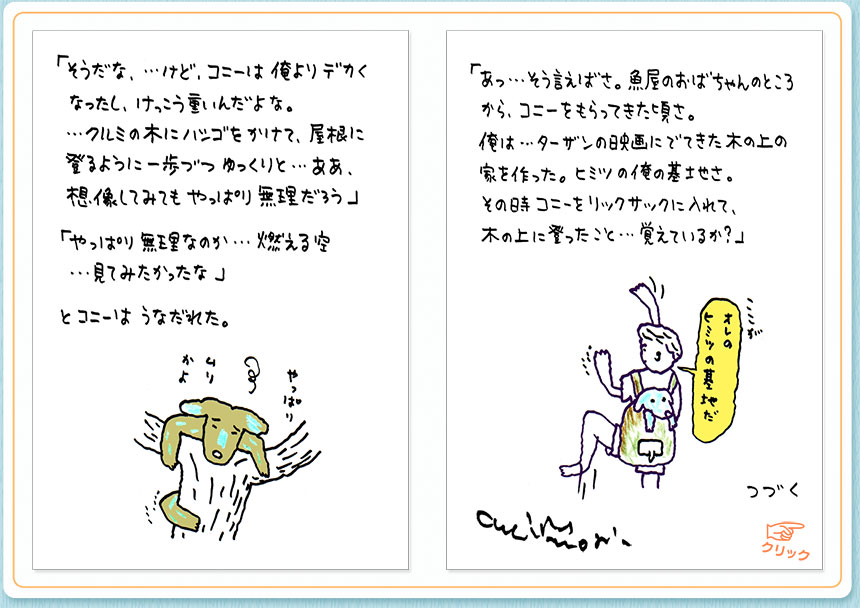 「そうだな、…けど、コニーは俺よりデカく
なったし、けっこう重いんだよな。
…クルミの木にハシゴをかけて、屋根に
登るように一歩づつゆっくりと…ああ、
想像してみてもやっぱり無理だろう」
「やっぱり無理なのか…燃える空
…見てみたかったな」
とコニーはうなだれた。
やっぱり
ムリ
かよ
「あっ…そう言えばさ。魚屋のおばちゃんのところ
から、コニーをもらってきた頃さ。
俺は…ターザンの映画にでてきた木の上の
家を作った。ヒミツの俺の基地さ。
その時コニーをリックサックに入れて、
木の上に登ったこと…覚えているか?」
ここが
オレの
ヒミツの基地だ
つづく
クリック